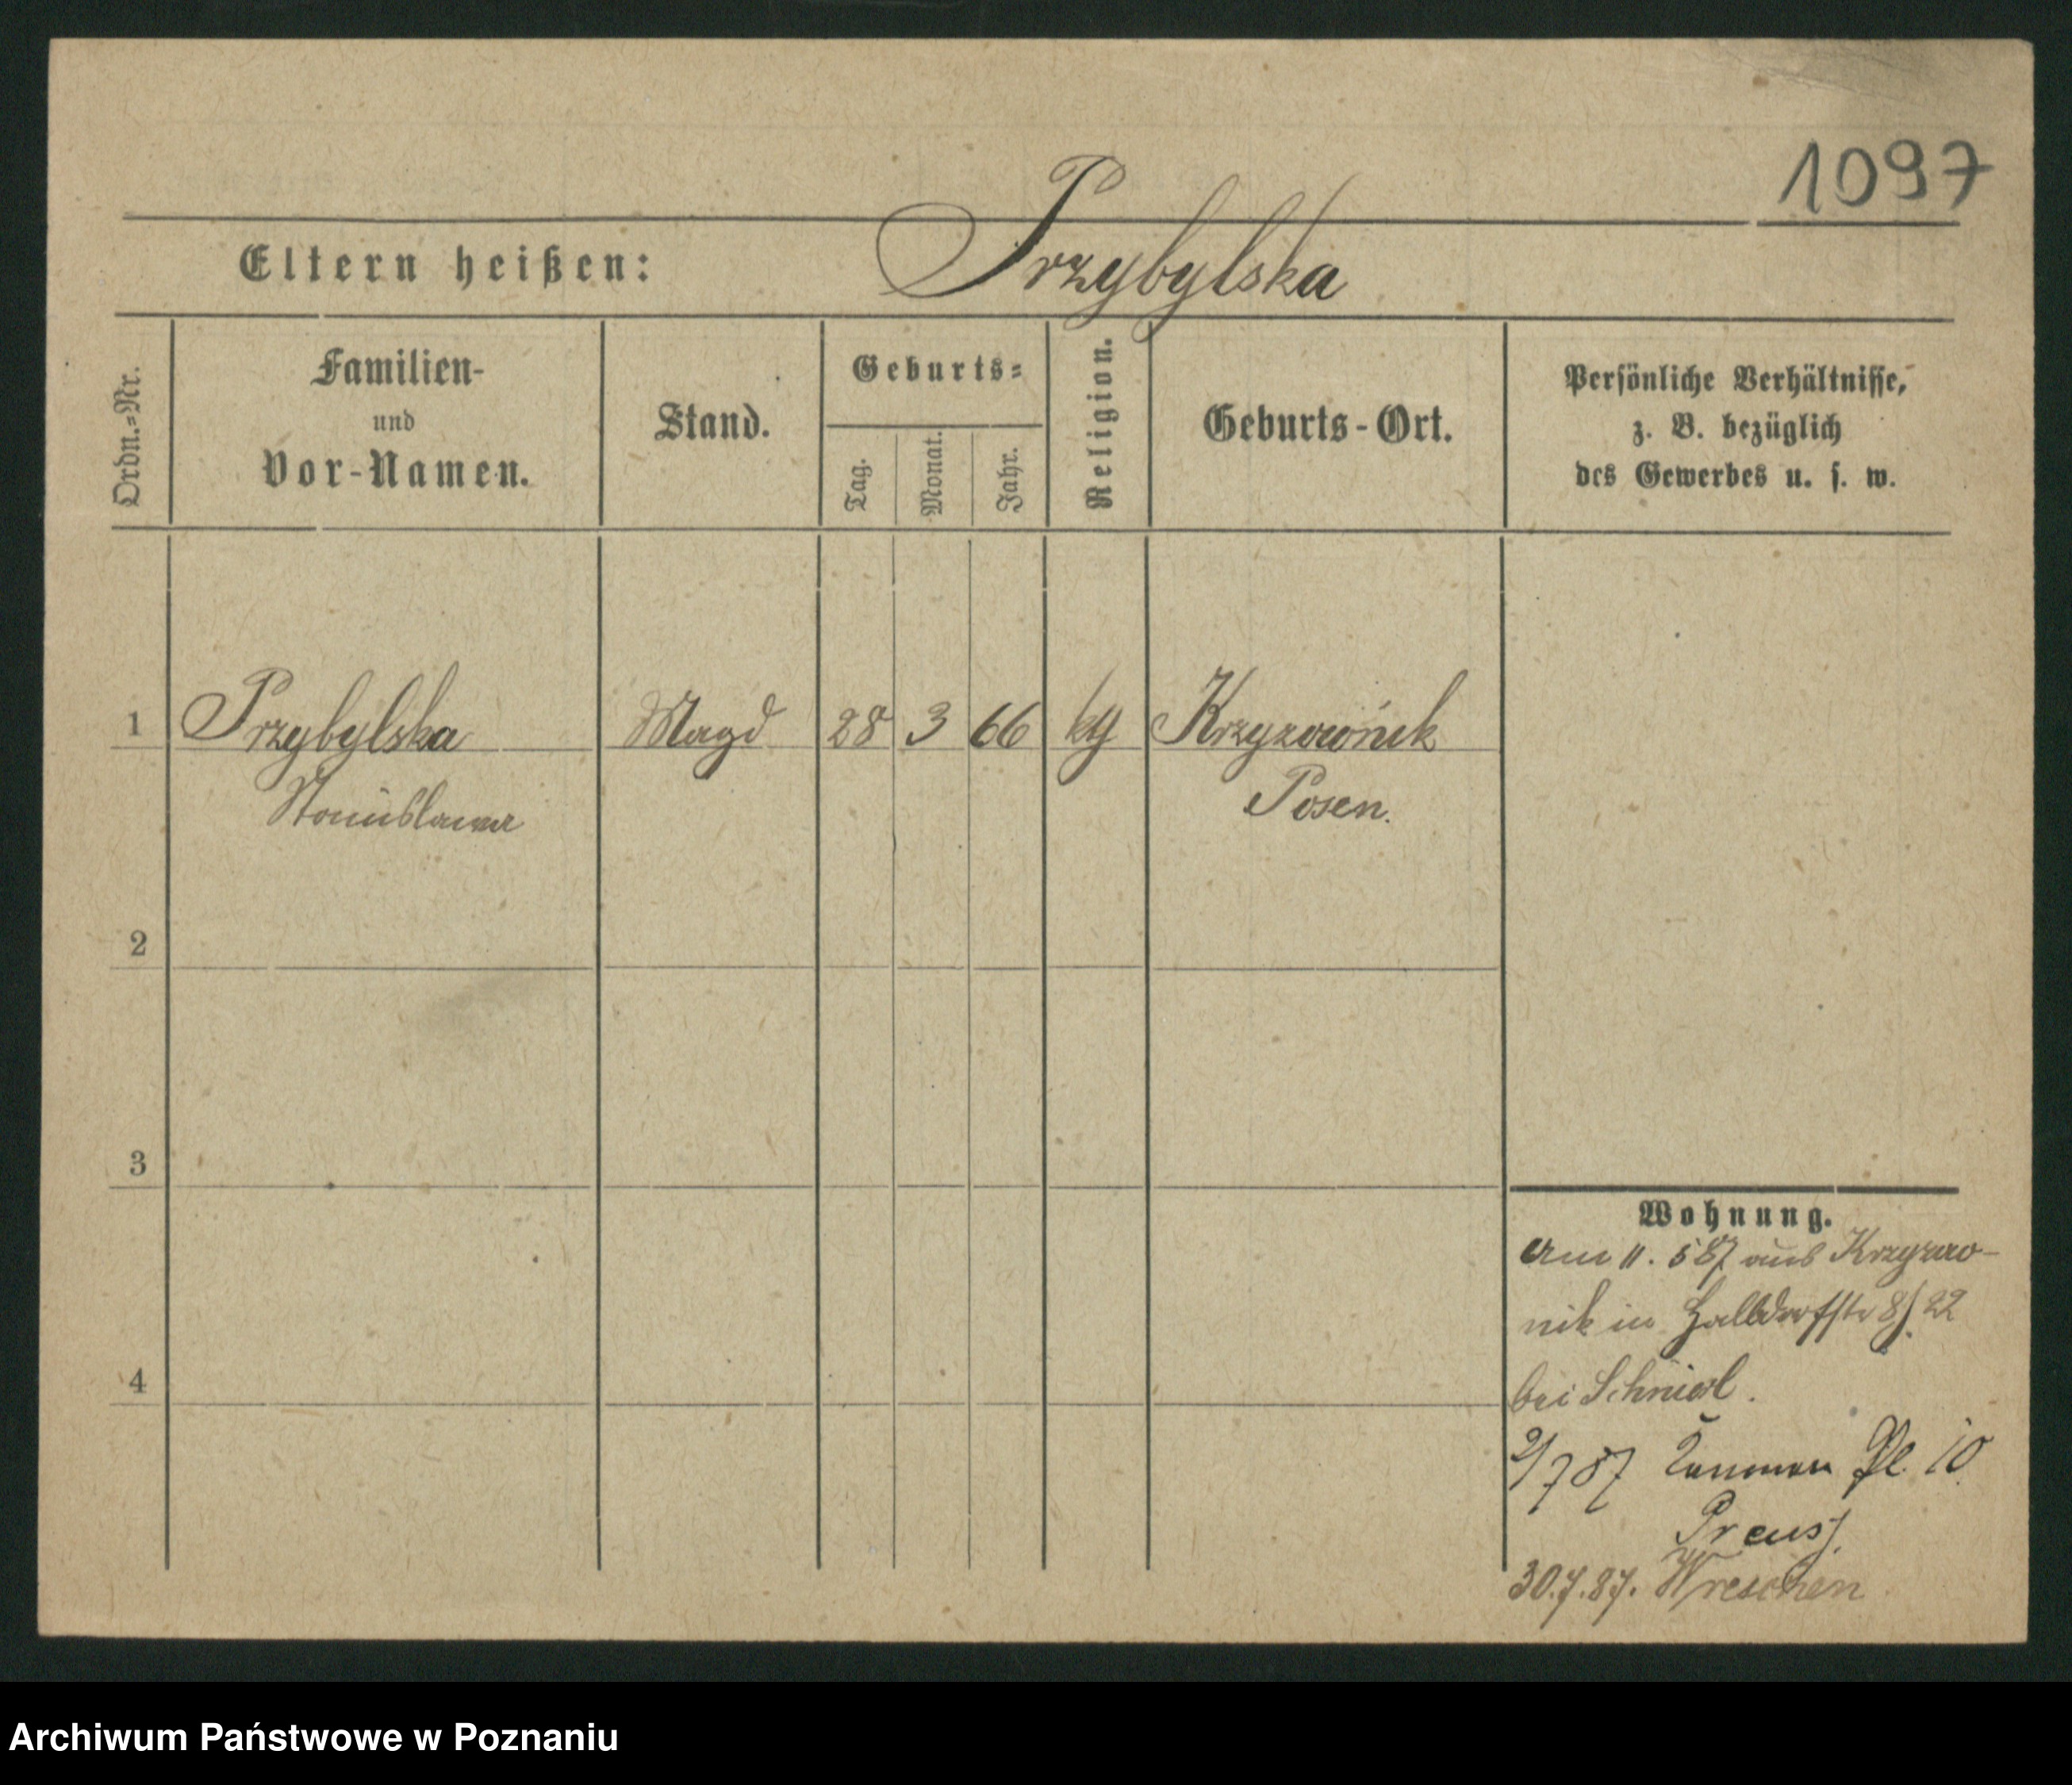 1097
Eltern heißen: Przybylska
Ordn.=Nr.
Familien-
und
Vor-Namen.
Stand.
Geburts=
Tag.
Monat.
Jahr.
Religion.
Geburts-Ort.
Persönliche Verhältnisse,
z. B. bezüglich
des Gewerbes u. s. w.
1 Przybylska Magd 28 3 66 kg Krzyzownik
Stanislawa Posen.
2
3
4
Wohnung.
Am 11. 5 87 aus Krzyzow-
nik in Halbdorfstr 8/ 22
bei
2/7 87 Pl. 10
Preuss.
30.7.87. Wreschen
Archiwum Państwowe w Poznaniu